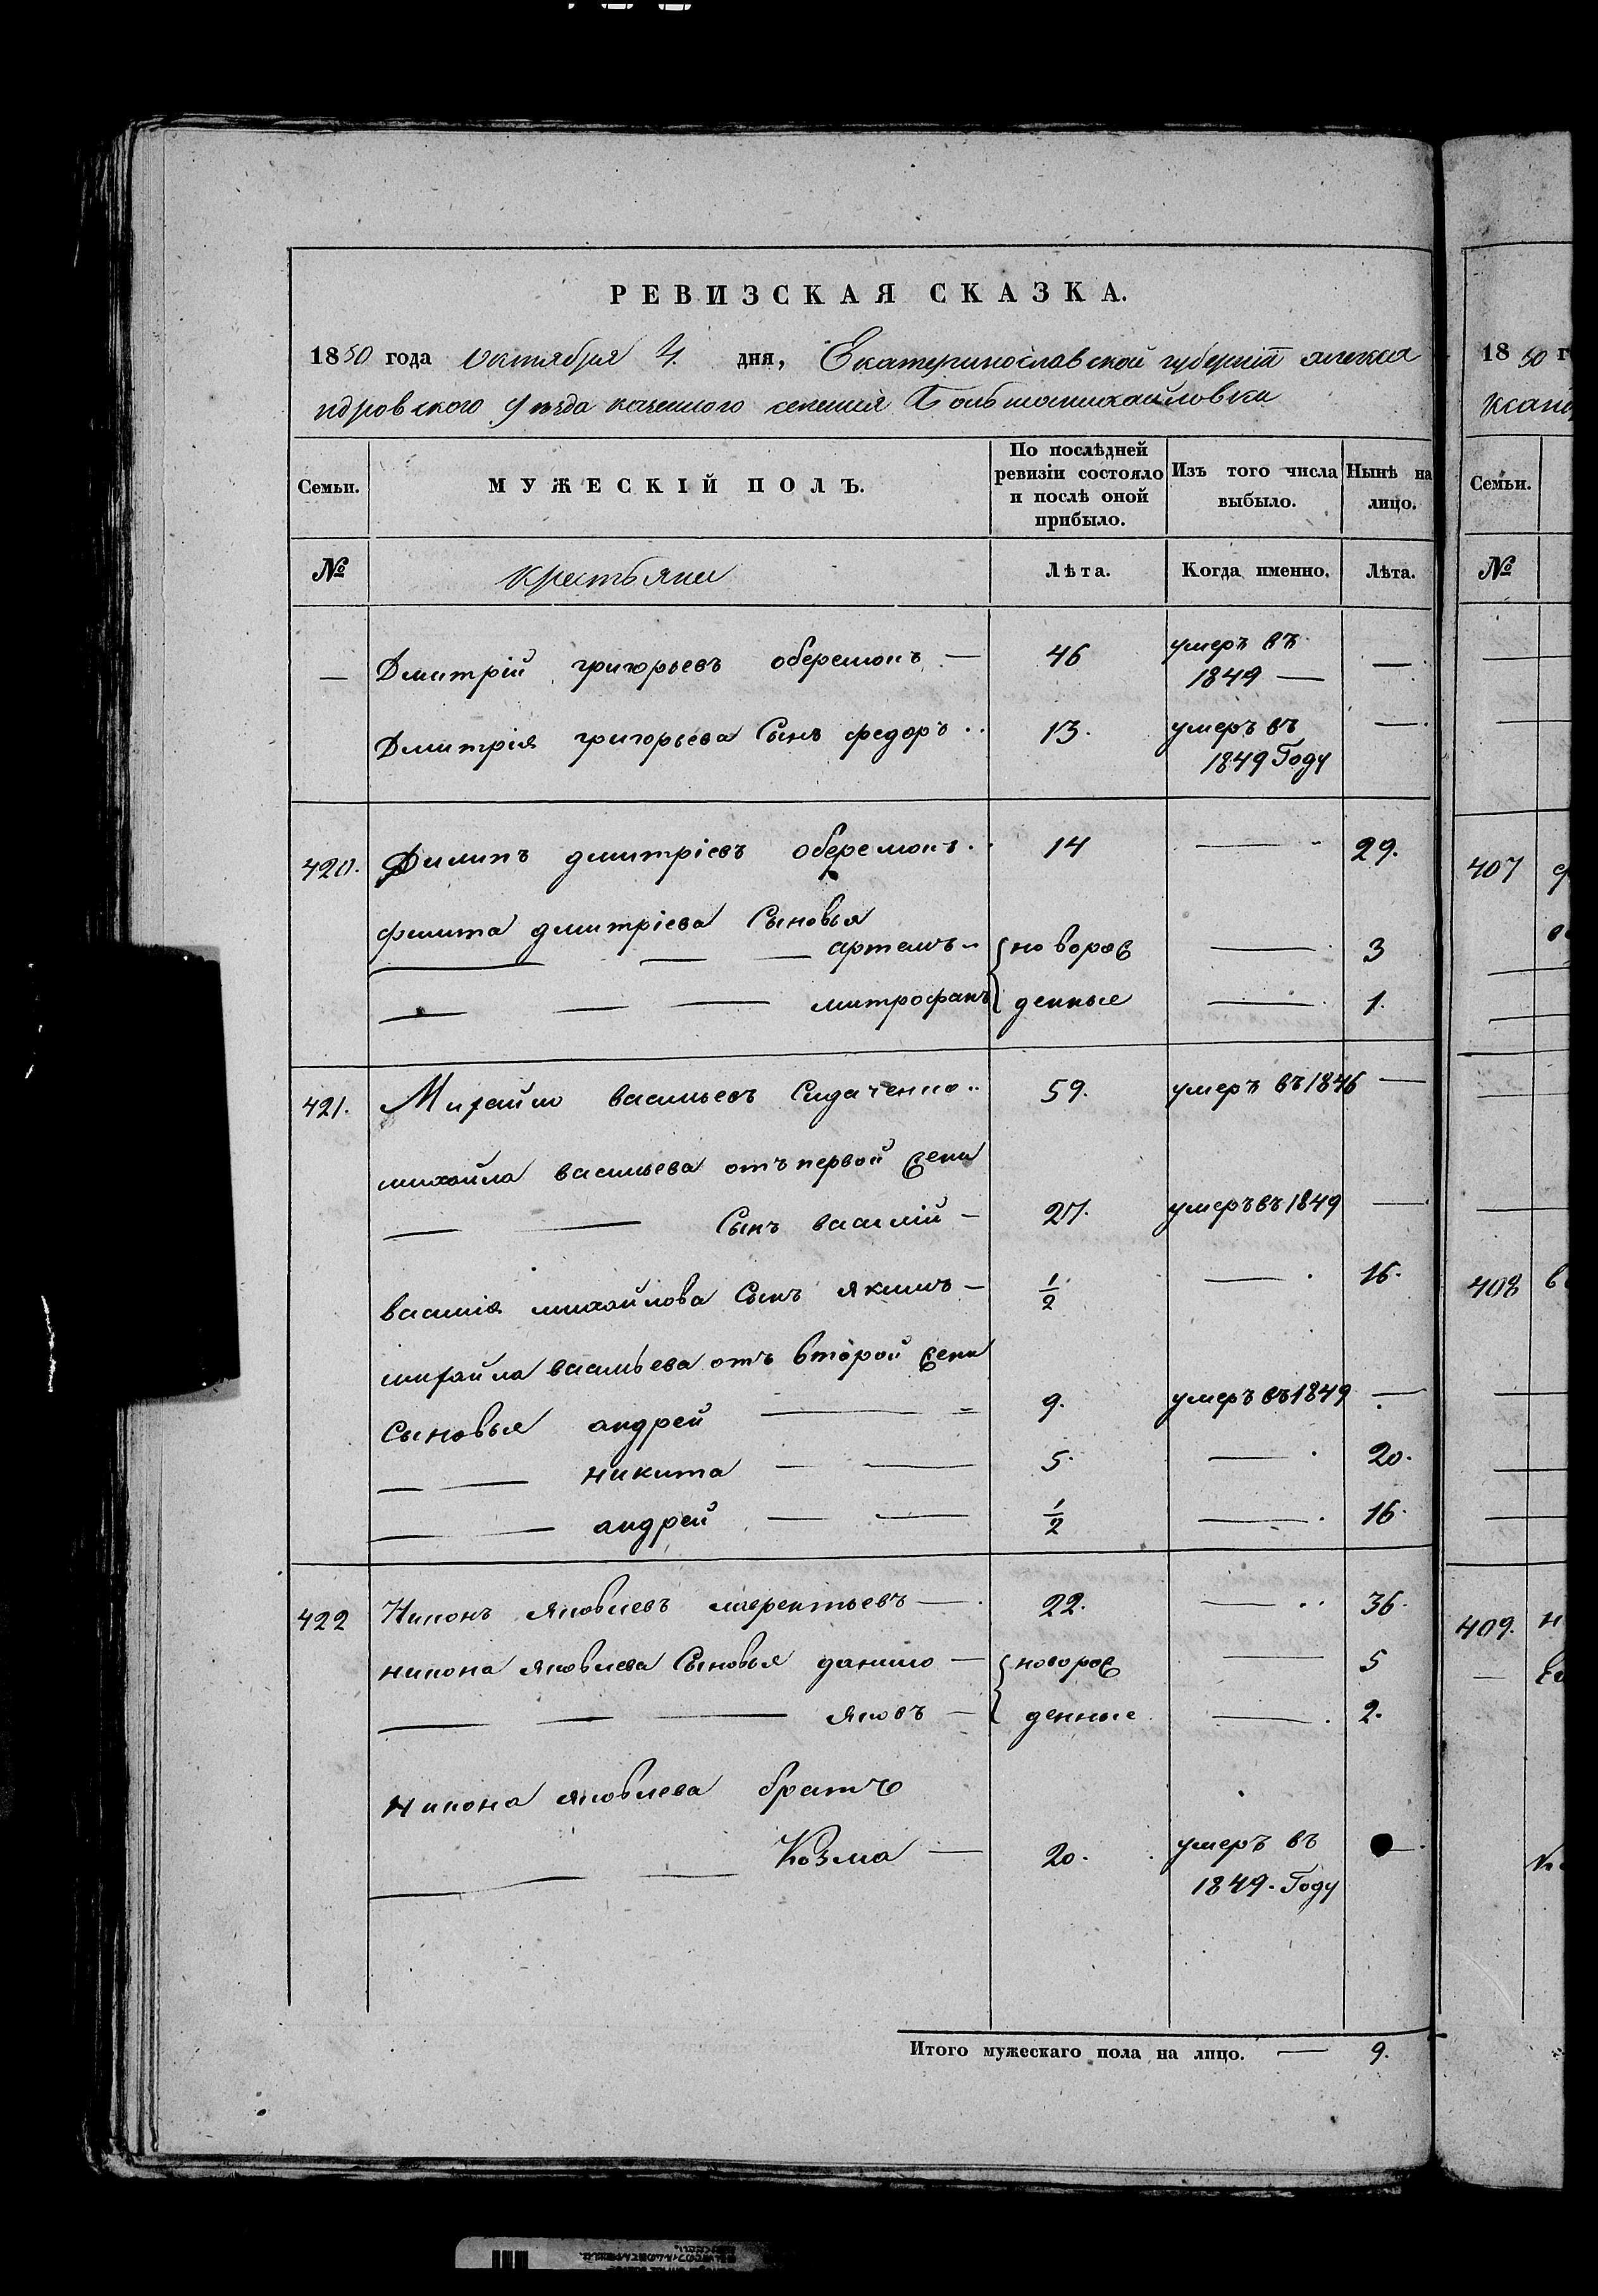 РЕВИЗСКАЯ СКАЗКА.
1850 года Октября 4. дня, Екатеринославской губернiи алекса
ндровского Уѣзда казенного селения Большамихайловки
Семьи.
МУЖЕСКІЙ ПОЛЪ.
По послѣдней
ревизіи состояло
и послѣ оной
прибыло.
Изъ того числа
выбыло.
Нынѣ на
лицо.
№ крестьяни Лѣта. Когда именно. Лѣта.
— Дмитрій григорьевъ оберемокъ — 46 умеръ въ
1849 — —
Дмитрія григорьева Сынъ федоръ .. 13. умеръ въ —
1849 Году
420. Филипъ дмитріевъ оберемокъ. 14 — 29.
филипа дмитріева Сыновья
— — — артемъ { новорож — 3
— — — митрофанъ { денные — 1.
421. Михайло васильевъ Сидаченко .. 59. умеръ въ 1846 —
михайла васильева отъ первой жени
— — Сынъ василій — 27. умеръ въ 1849 —
василія михайлова Сынъ якимъ — 1/2 — 16.
михайла васильева отъ второй жени
Сыновья андрей — 9. умеръ въ 1849 —
— — никита — — 5. — 20.
— — андрей — — 1/2 — 16.
422 Никонъ яковлевъ лаврентьевъ — 22. — 36.
никона яковлева Сыновья данило — { новорож — 5
— — — яковъ — { денные — 2.
Никона яковлева братъ
— — Козма — 20. умеръ въ —
1849. Году
Итого мужескаго пола на лицо. — 9.
18 50 г
ксанд
Семьи.
№
407
408
409.